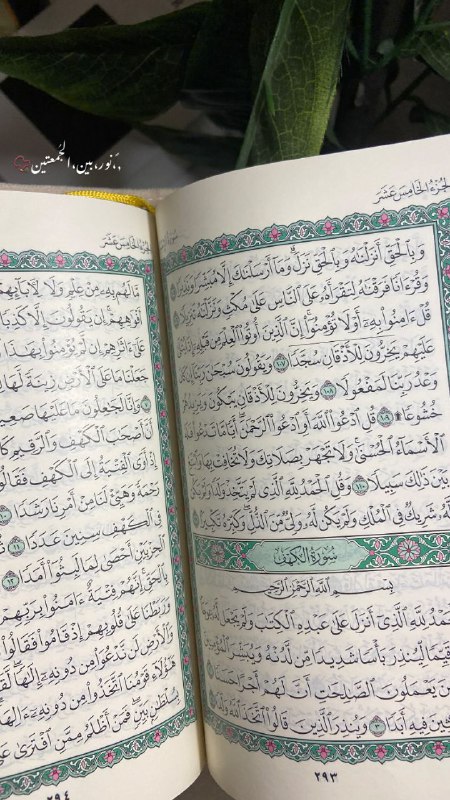 نور،بين،الجمعتين
الجزء الخامس عشر
وَبِالْحَقِّ أَنزَلْنَٰهُ وَبِالْحَقِّ نَزَلَ وَمَآ أَرْسَلْنَٰكَ إِلَّا مُبَشِّرًا وَنَذِيرًا
وَقُرْءَانًا فَرَقْنَٰهُ لِتَقْرَأَهُ عَلَى النَّاسِ عَلَىٰ مُكْثٍ وَنَزَّلْنَٰهُ تَنزِيلًا
قُلْ ءَامِنُوا بِهِ أَوْ لَا تُؤْمِنُوا إِنَّ الَّذِينَ أُوتُوا الْعِلْمَ مِن قَبْلِهِ إِذَا يُتْلَىٰ
عَلَيْهِمْ يَخِرُّونَ لِلْأَذْقَانِ سُجَّدًا ١٠٧ وَيَقُولُونَ سُبْحَٰنَ رَبِّنَآ إِن كَانَ
وَعْدُ رَبِّنَا لَمَفْعُولًا ١٠٨ وَيَخِرُّونَ لِلْأَذْقَانِ يَبْكُونَ وَيَزِيدُهُمْ
خُشُوعًا ۩ ١٠٩ قُلِ ادْعُوا اللَّهَ أَوِ ادْعُوا الرَّحْمَٰنَ أَيًّا مَّا تَدْعُوا فَلَهُ
الْأَسْمَآءُ الْحُسْنَىٰ وَلَا تَجْهَرْ بِصَلَاتِكَ وَلَا تُخَافِتْ بِهَا وَابْتَغِ
بَيْنَ ذَٰلِكَ سَبِيلًا ١١٠ وَقُلِ الْحَمْدُ لِلَّهِ الَّذِي لَمْ يَتَّخِذْ وَلَدًا وَلَمْ يَكُن
لَّهُ شَرِيكٌ فِي الْمُلْكِ وَلَمْ يَكُن لَّهُ وَلِيٌّ مِّنَ الذُّلِّ وَكَبِّرْهُ تَكْبِيرًا
سُورَةُ الْكَهْفِ
بِسْمِ اللَّهِ الرَّحْمَٰنِ الرَّحِيمِ
الْحَمْدُ لِلَّهِ الَّذِي أَنزَلَ عَلَىٰ عَبْدِهِ الْكِتَٰبَ وَلَمْ يَجْعَل لَّهُ عِوَجًا
قَيِّمًا لِّيُنذِرَ بَأْسًا شَدِيدًا مِّن لَّدُنْهُ وَيُبَشِّرَ الْمُؤْمِنِينَ
الَّذِينَ يَعْمَلُونَ الصَّٰلِحَٰتِ أَنَّ لَهُمْ أَجْرًا حَسَنًا
مَّٰكِثِينَ فِيهِ أَبَدًا ٣ وَيُنذِرَ الَّذِينَ قَالُوا اتَّخَذَ اللَّهُ وَلَدًا
٢٩٣
الجزء الخامس عشر
مَّا لَهُم بِهِ مِنْ عِلْمٍ وَلَا لِءَابَآئِهِمْ
أَفْوَٰهِهِمْ إِن يَقُولُونَ إِلَّا كَذِبًا
عَلَىٰٓ ءَاثَٰرِهِمْ إِن لَّمْ يُؤْمِنُوا بِهَٰذَا
جَعَلْنَا مَا عَلَى الْأَرْضِ زِينَةً لَّهَا
وَإِنَّا لَجَٰعِلُونَ مَا عَلَيْهَا صَعِيدًا
أَنَّ أَصْحَٰبَ الْكَهْفِ وَالرَّقِيمِ كَانُوا
إِذْ أَوَى الْفِتْيَةُ إِلَى الْكَهْفِ فَقَالُوا
رَحْمَةً وَهَيِّئْ لَنَا مِنْ أَمْرِنَا رَشَدًا
فِي الْكَهْفِ سِنِينَ عَدَدًا ١١
الْحِزْبَيْنِ أَحْصَىٰ لِمَا لَبِثُوا أَمَدًا ١٢
بِالْحَقِّ إِنَّهُمْ فِتْيَةٌ ءَامَنُوا بِرَبِّهِمْ
وَرَبَطْنَا عَلَىٰ قُلُوبِهِمْ إِذْ قَامُوا فَقَالُوا
وَالْأَرْضِ لَن نَّدْعُوَا مِن دُونِهِ إِلَٰهًا لَّقَدْ
هَٰٓؤُلَآءِ قَوْمُنَا اتَّخَذُوا مِن دُونِهِ ءَالِهَةً
بِسُلْطَٰنٍ بَيِّنٍ فَمَنْ أَظْلَمُ مِمَّنِ افْتَرَىٰ عَلَى
٢٩٤